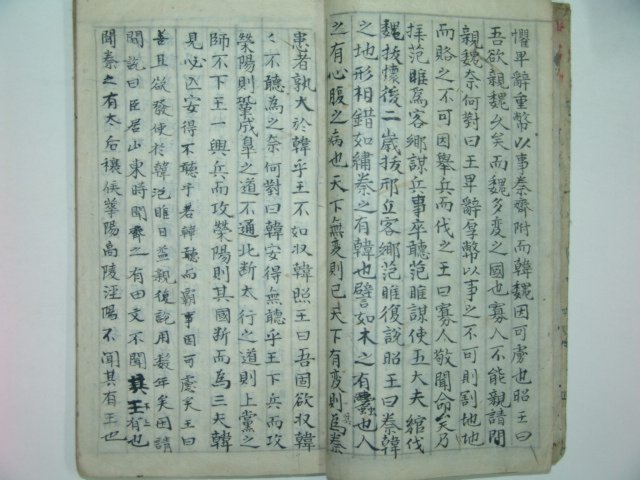 懼卑辭重幣以事秦齊附而韓魏因可虜也昭王曰
吾欲親魏久矣而魏多変之國也寡人不能親請問
親魏奈何對曰王卑辭厚幣以事之不可則割地地
而賂之不可因舉兵而伐之王曰寡人敬聞命矣乃
拜范睢爲客卿謀兵事卒聽范睢謀使五大夫綰伐
魏拔懷後二歲拔邢丘客卿范睢復說昭王曰秦韓
之地形相錯如繡秦之有韓也譬如木之有蠹也人
之有心腹之病也天下無変則已天下有変則爲秦
患者孰大於韓乎王不如収韓昭王曰吾固欲収韓
々不聽為之奈何對曰韓安得無聽乎王下兵而攻
榮陽則鞏成皐之道不通北断太行之道則上黨之
師不下王一興兵而攻榮陽則其國断而爲三夫韓
見必亡安得不聽乎若韓聽而霸事因可慮矣王曰
善且欲發使於韓范睢日益親復說用数年矣因請
間說曰臣居山東時聞齊之有田文不聞其王有也
聞秦之有太后穰侯華陽高陵涇陽不聞其有王也